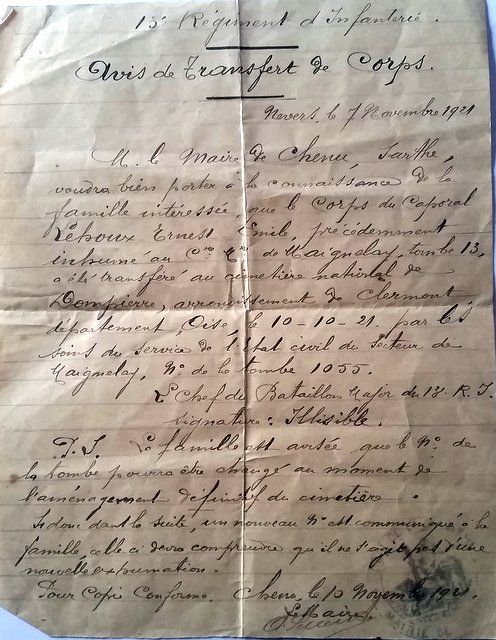 13e Régiment d'Infanterie.
Avis de Transfert de Corps.
Nevers, le 7 Novembre 1921
M. le Maire de Chenu, Sarthe,
voudra bien porter à la connaissance de la
famille intéressée, que le Corps du Caporal
Leboux Ernest Emile, précédemment
inhumé au Cre Mre de Maignelay, tombe 13,
a été transféré au cimetière national de
Dompierre, arrondissement de Clermont
département, Oise, le 10-10-21. par les
soins du service de l'Etat civil du secteur de
Maignelay, No de la tombe 1055.
Le Chef de Bataillon Major du 13e R. I.
Signature: Illisible.
P.S. La famille est avisée que le No de
la tombe pourra être changé au moment de
l'aménagement définitif du cimetière.
Si donc dans la suite, un nouveau No est communiqué à la
famille, celle ci devra comprendre qu'il ne s'agit pas d'une
nouvelle exhumation.
Pour Copie Conforme. Chenu, le 10 Novembre 1921.
Le Maire